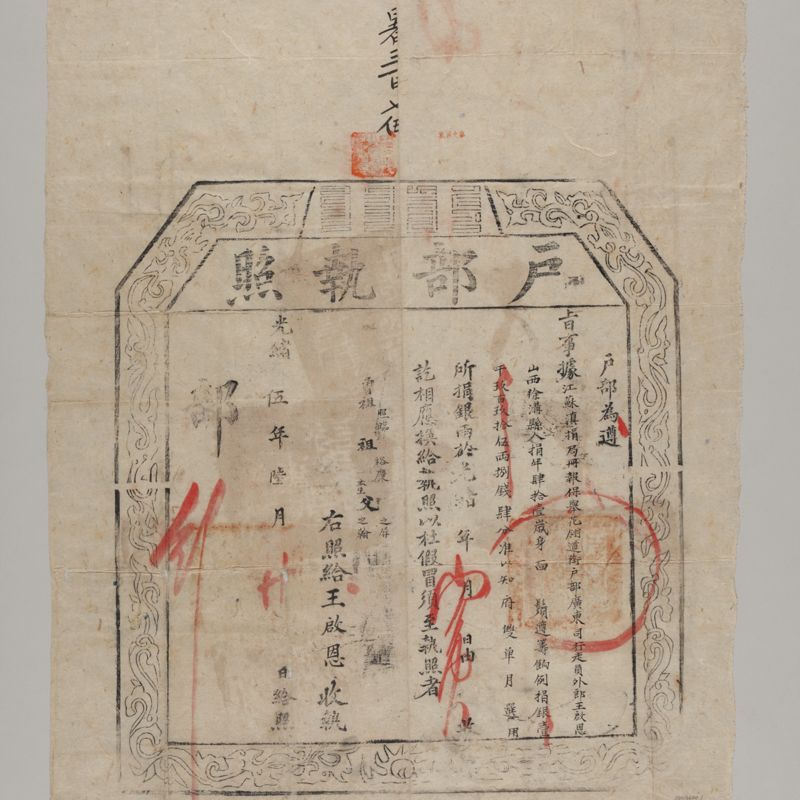 戶部執照
戶部為遵
旨事據江蘇滇捐局冊報保舉花翎道銜戶部廣東司行走員外郎王啟恩
山西徐溝縣人捐年肆拾壹歲身 面 鬚遵籌餉例捐銀壹
千玖百玖拾伍兩捌錢肆分准以知府雙單月選用
所捐銀兩於光緒 年 月 日由
訖相應換給執照以杜假冒須至執照者
曾祖 祖 父
右照給王啟恩收執
光緒伍年陸月 日給照
部